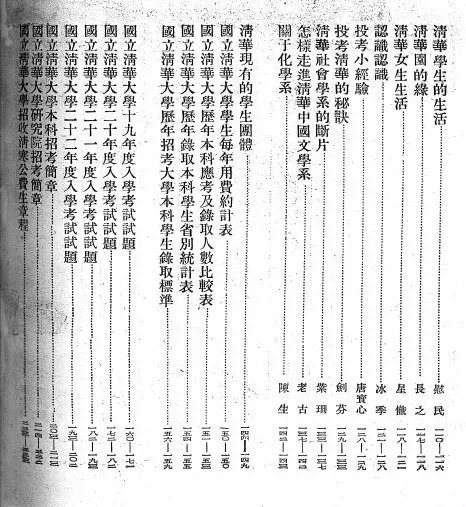 清華學生的生活……慰民
清華園的綠……長之 一一七—一一八
清華女生生活……星
認識認識……冰季
投考小經驗……唐寶心 一二八—一二九
投考清華的秘訣……劍芬
清華社會學系的斷片……紫珊
怎樣走進清華中國文學系……老古
關于化學系……陳生
清華現有的學生團體……一四四—一四九
國立清華大學學生每年用費約計表……一五〇
國立清華大學歷年本科應考及錄取人數比較表……一五一
國立清華大學歷年錄取本科學生省別統計表……一五四—一五五
國立清華大學歷年招考大學本科學生錄取標準……一五六—一五九
國立清華大學十九年度入學考試試題……一六〇—一七一
國立清華大學二十年度入學考試試題……一七二—一八一
國立清華大學二十一年度入學考試試題
國立清華大學二十二年度入學考試試題
國立清華大學本科招考簡章
國立清華大學研究院招考簡章
國立清華大學招收清寒公費生章程